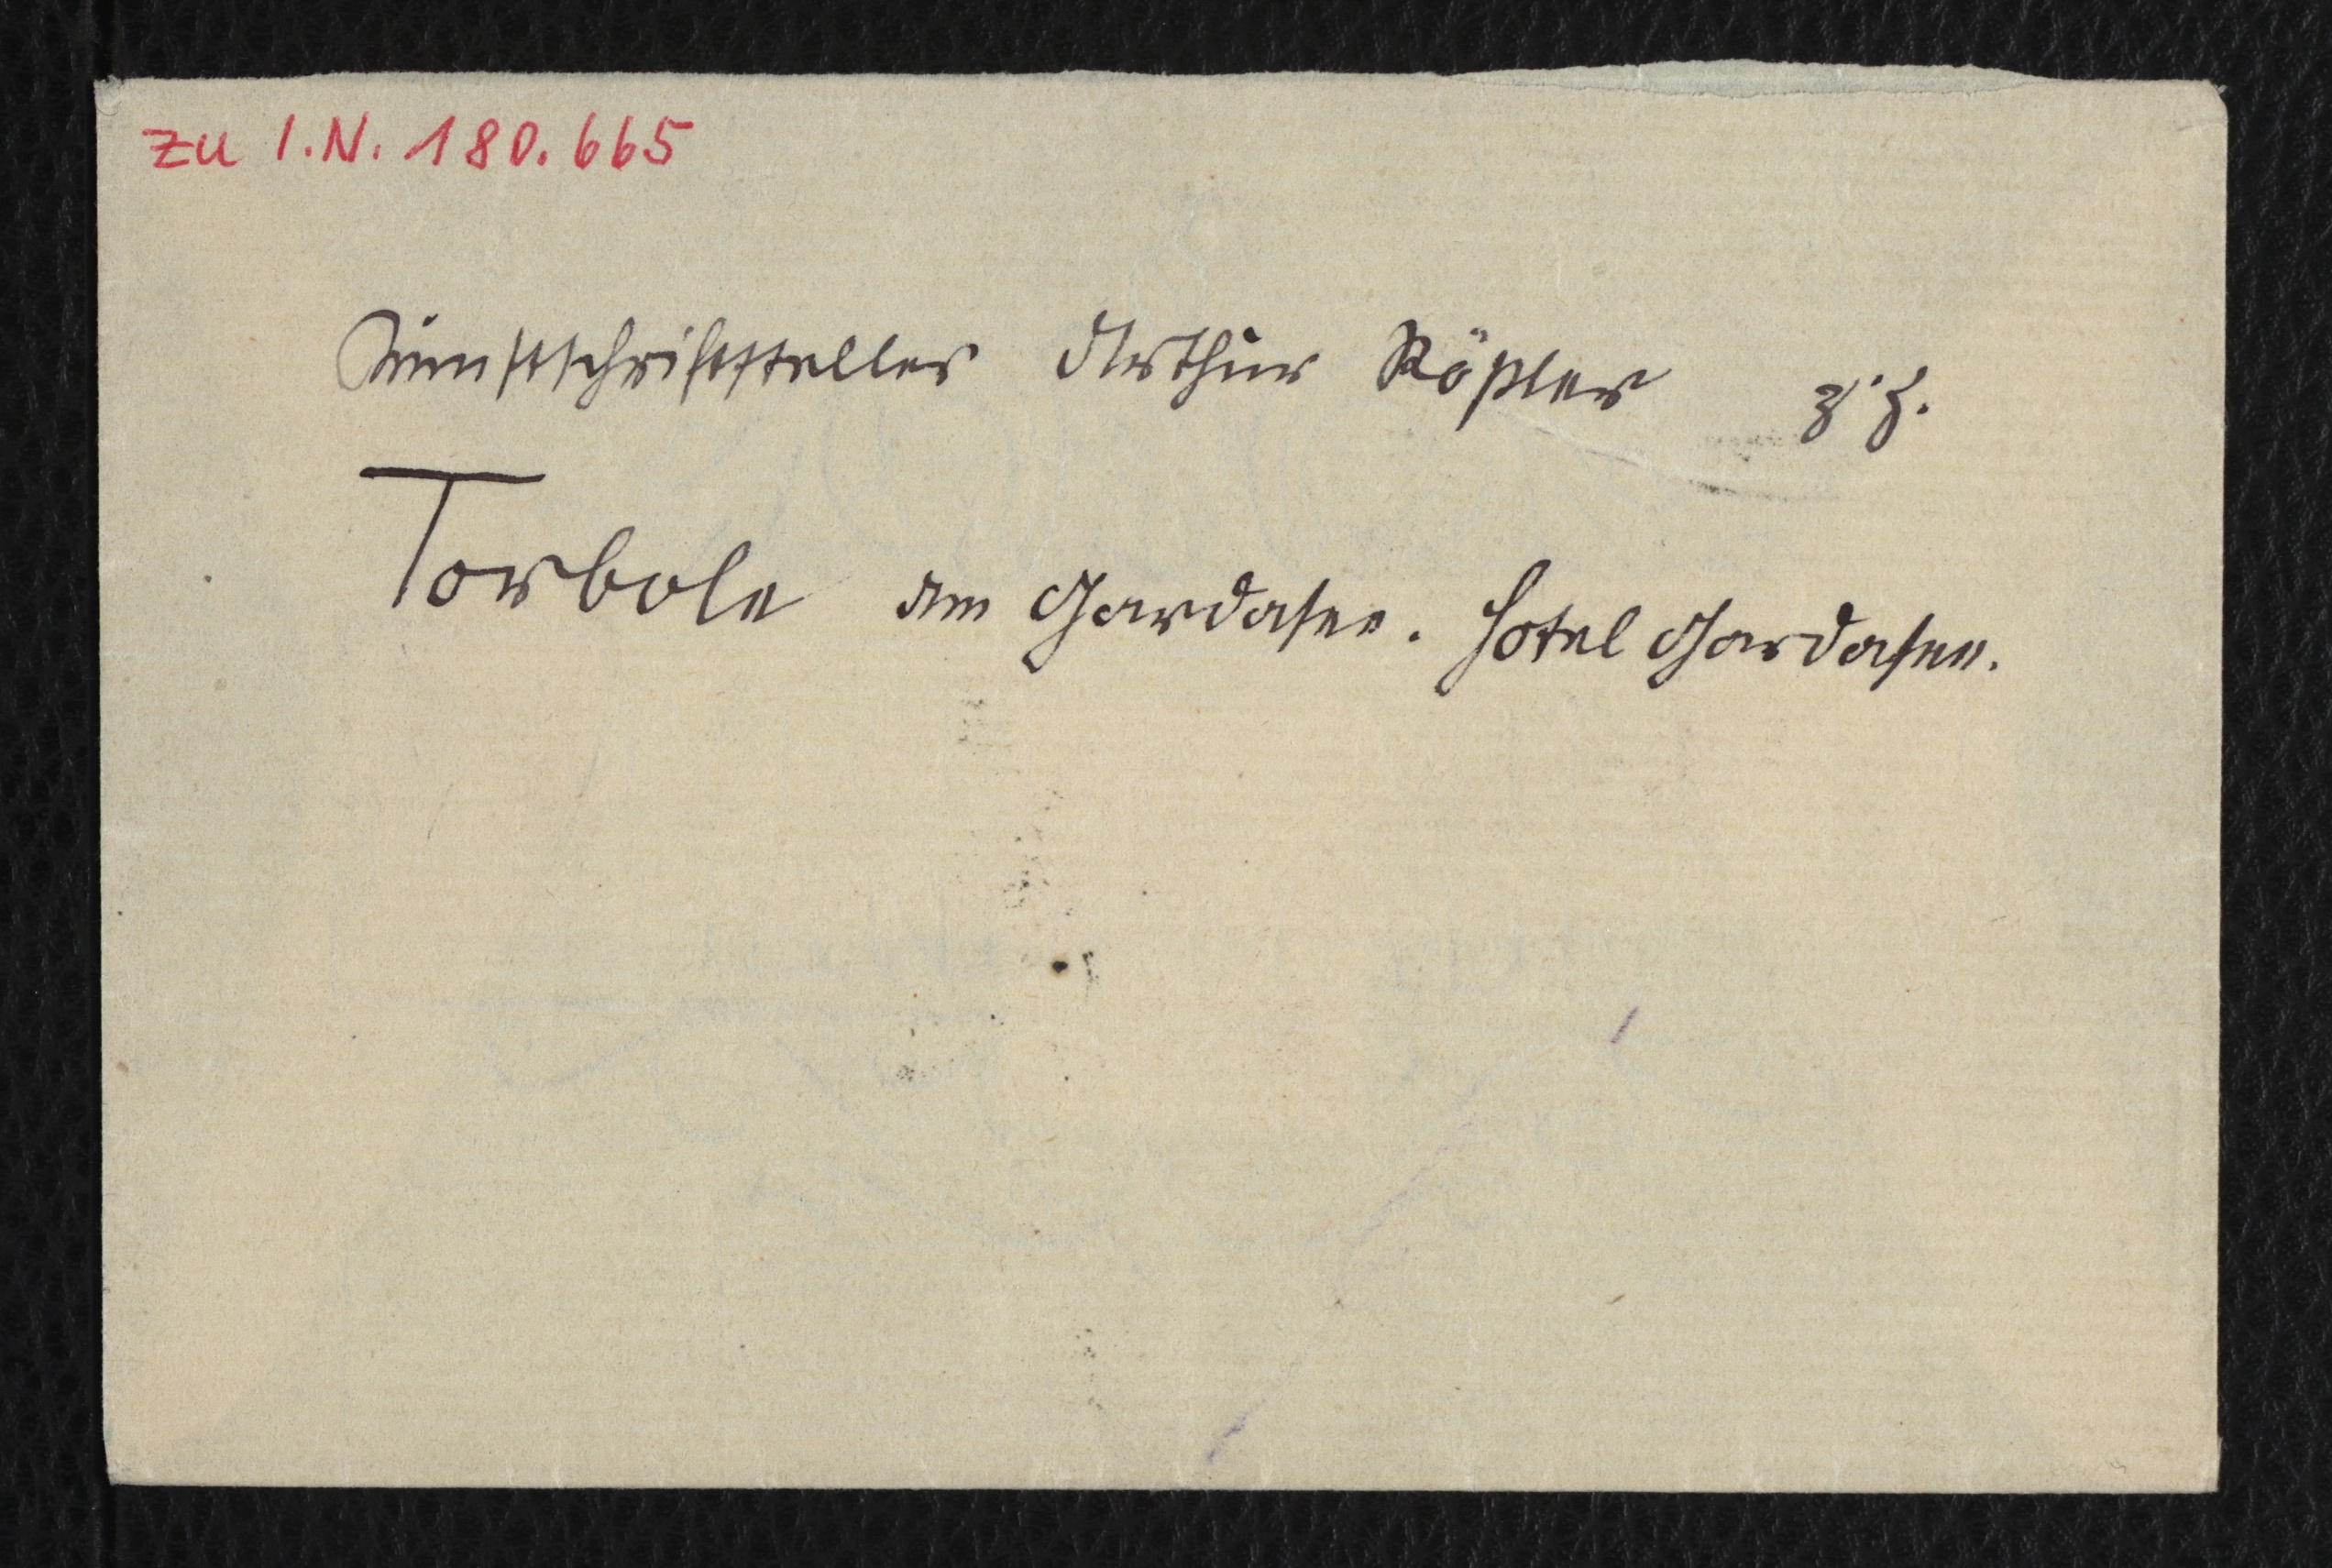 zu I.N. 180.665
Kunstschriftsteller Arthur Rößler z. Z.
Torbole am Gardasee. Hotel Gardasee.